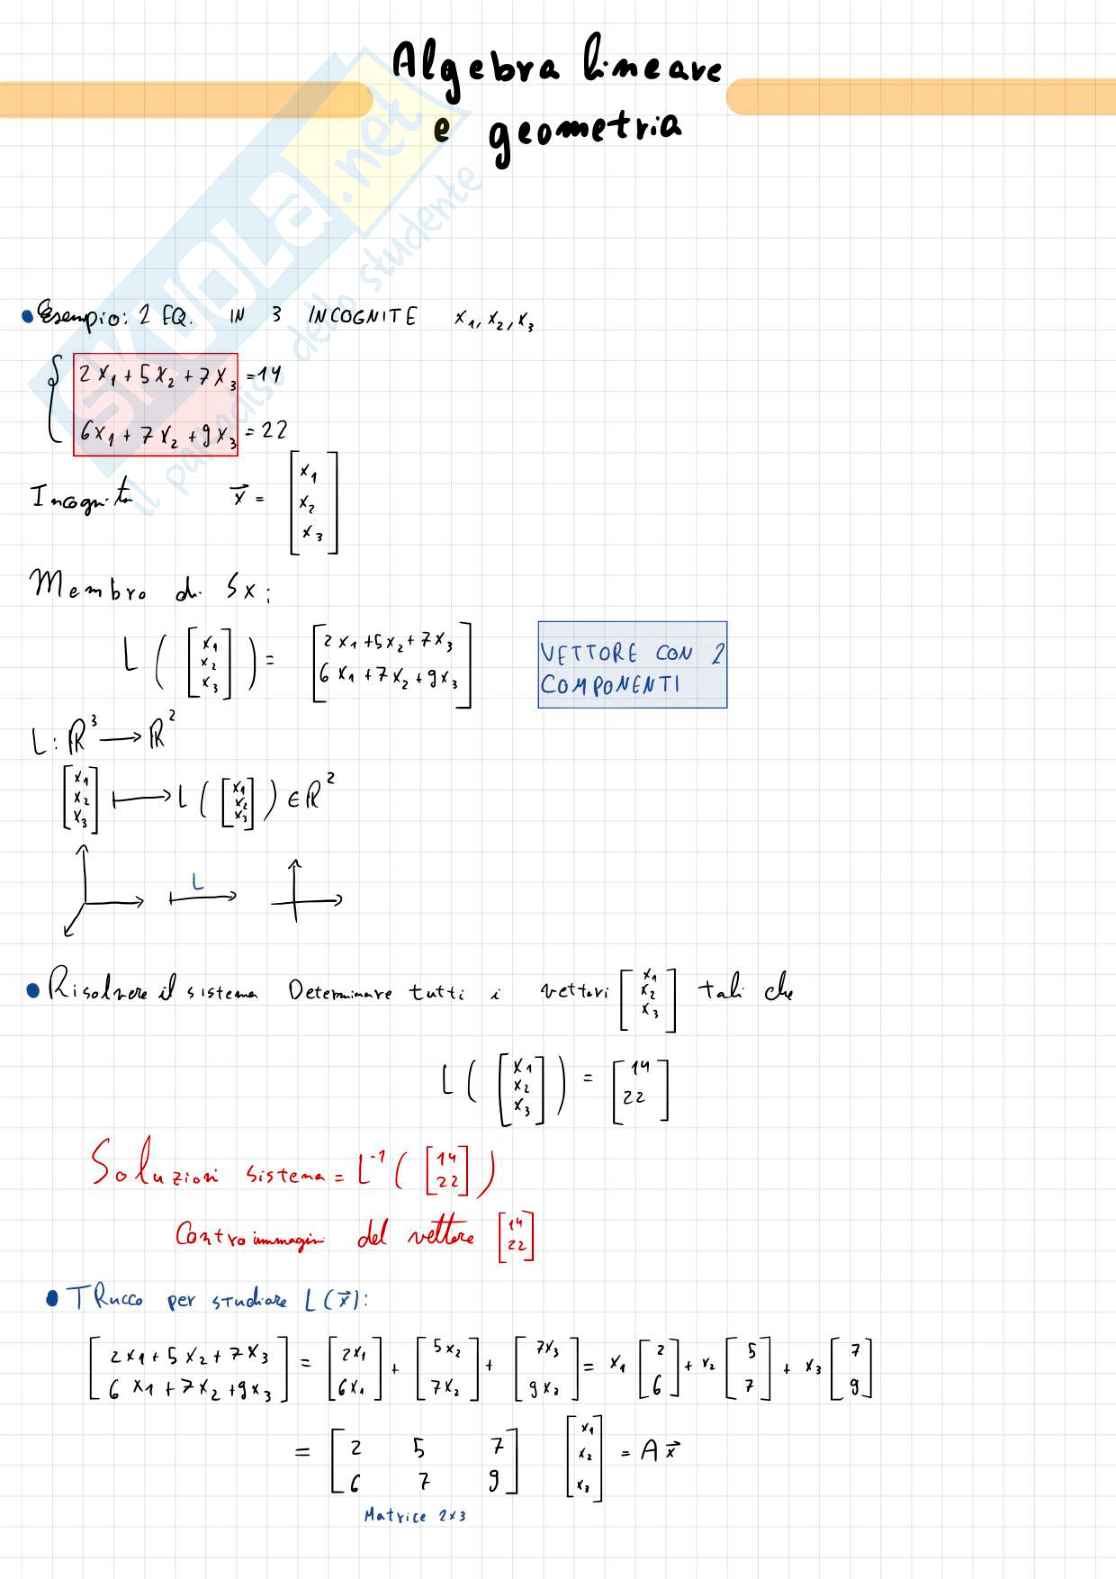 Algebra lineare
e geometria
SKUOLA.net
il paradiso dello studente
• Esempio: 2 EQ. IN 3 INCOGNITE x₁, x₂, x₃
{ 2x₁ + 5x₂ + 7x₃ = 14
6x₁ + 7x₂ + 9x₃ = 22
Incognita x⃗ = [x₁ x₂ x₃]
Membro di Sx:
L([x₁ x₂ x₃]) = [2x₁ + 5x₂ + 7x₃
6x₁ + 7x₂ + 9x₃]
VETTORE CON 2
COMPONENTI
L: ℝ³ → ℝ²
[x₁ x₂ x₃] ↦ L([x₁ x₂ x₃]) ∈ ℝ²
L
• Risolvere il sistema Determinare tutti i vettori [x₁ x₂ x₃] tali che
L([x₁ x₂ x₃]) = [14 22]
Soluzioni sistema = L⁻¹([14 22])
Controimmagini del vettore [14 22]
• TRucco per studiare L(x⃗):
[2x₁ + 5x₂ + 7x₃
6x₁ + 7x₂ + 9x₃] = [2x₁ 6x₁] + [5x₂ 7x₂] + [7x₃ 9x₃] = x₁ [2 6] + x₂ [5 7] + x₃ [7 9]
= [2 5 7
6 7 9] [x₁ x₂ x₃] = Ax⃗
Matrice 2x3